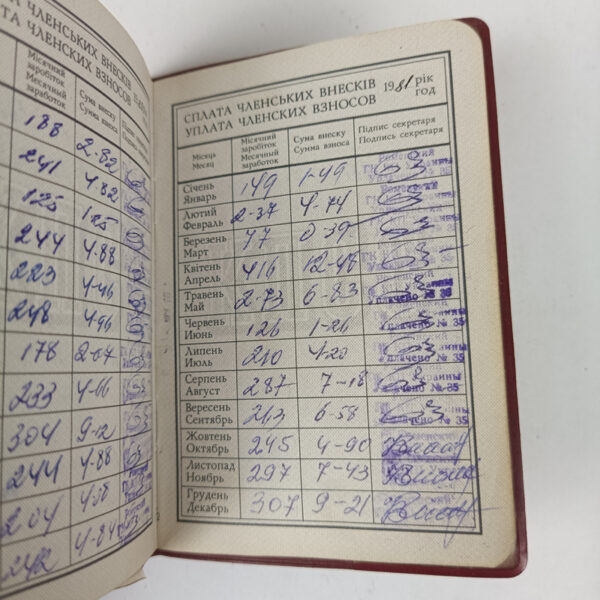 СПЛАТА ЧЛЕНСЬКИХ ВНЕСКІВ
УПЛАТА ЧЛЕНСКИХ ВЗНОСОВ
Місячний заробіток
Месячный заработок
Сума внеску
Сумма взноса
188 2-82
241 4-82
125 1-25
244 4-88
223 4-46
248 4-96
178 2-07
233 4-66
304 9-12
244 4-88
204 4-08
242 4-84
СПЛАТА ЧЛЕНСЬКИХ ВНЕСКІВ 1981 рік
УПЛАТА ЧЛЕНСКИХ ВЗНОСОВ год
Місяць
Месяц
Місячний
заробіток
Месячный
заработок
Сума внеску
Сумма взноса
Підпис секретаря
Подпись секретаря
Січень
Январь 149 1-49
Лютий
Февраль 2-37 4-74
Березень
Март 77 0-39
Квітень
Апрель 416 12-48
Травень
Май 2-73 6-83
Уплачено № 35
Червень
Июнь 126 1-26
Уплачено № 35
Липень
Июль 210 4-20
Уплачено № 35
Серпень
Август 287 7-18
№ 35
Вересень
Сентябрь 263 6-58
№ 35
Жовтень
Октябрь 245 4-90
Листопад
Ноябрь 297 7-43
Грудень
Декабрь 307 9-21